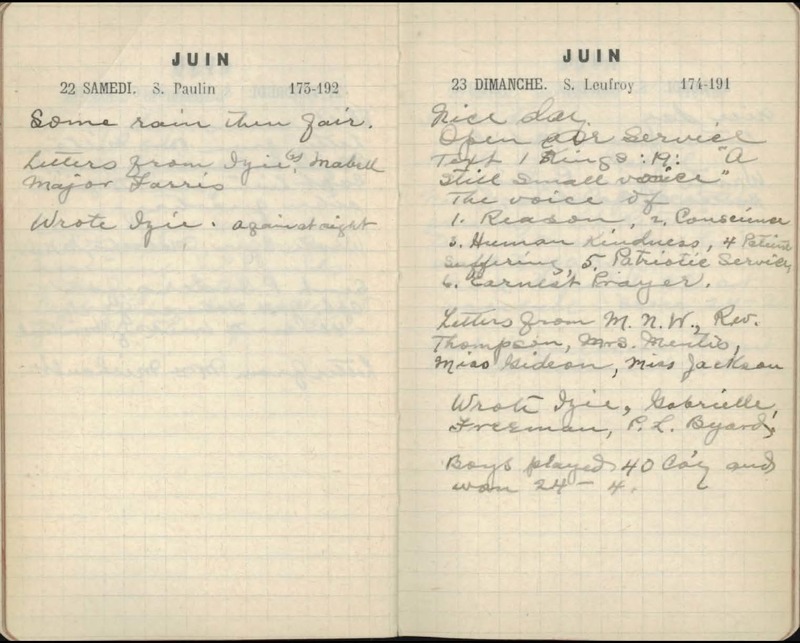 JUIN
22 SAMEDI. S. Paulin 173-192
Some rain then fair.
Letters from Izie (2), Mabell
Major Farris
Wrote Izie. again at night
JUIN
23 DIMANCHE. S. Leufroy 174-191
Nice day.
Open air service
Text 1 Kings: 19: "A
still small voice"
The voice of
1. Reason, 2. Conscience
3. Human Kindness, 4 Patient
Suffering, 5. Patriotic Service,
6. Earnest Prayer.
Letters from M. N. W., Rev.
Thompson, Mrs.
Miss Gideon, Miss Jackson
Wrote Izie, Gabrielle,
Freeman, P. L. Byard,
Boys played 40 Co'y and
won 24 - 4.